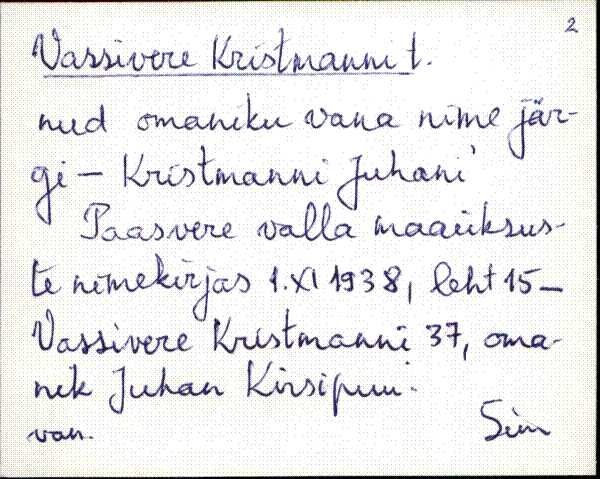 2
Vassivere Kristmanni t.
nud omaniku vana nime jär-
gi — Kristmanni Juhani'
Paasvere valla maaüksus-
te nimekirjas 1.XI 1938, leht 15 —
Vassivere Kristmanni 37, oma-
nik Juhan Kirsipuu.
van.